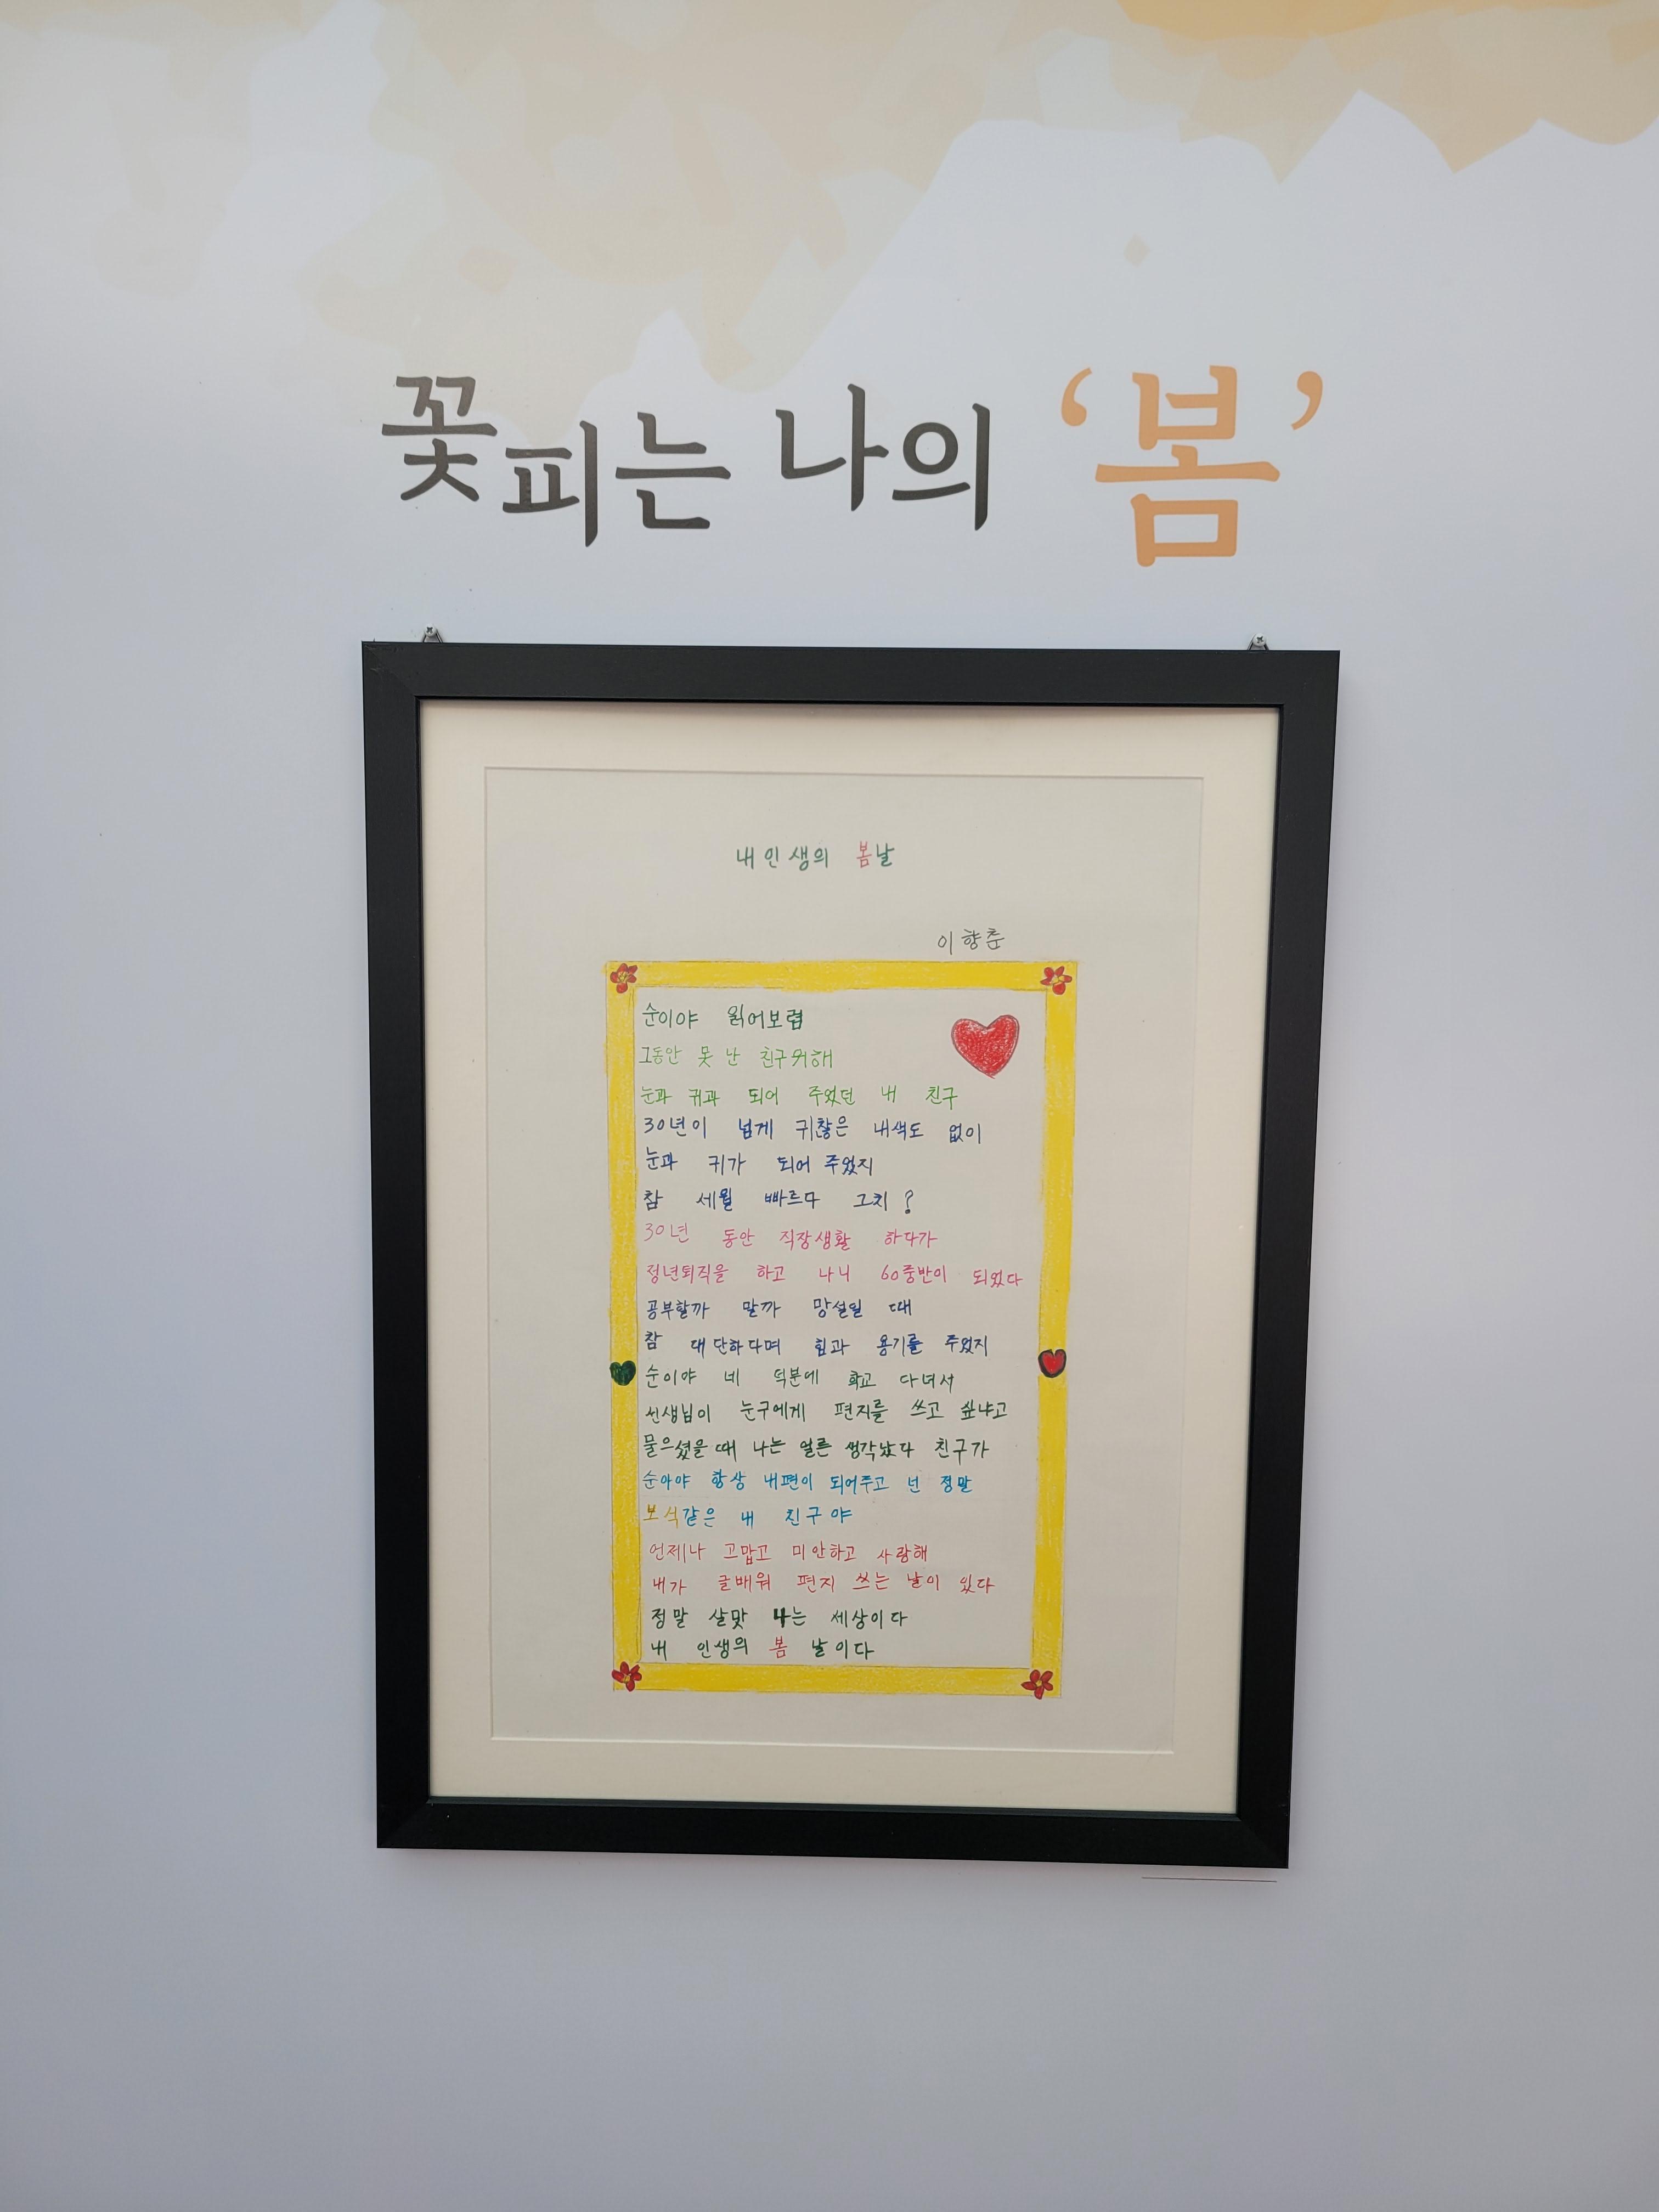 꽃피는 나의 '봄'
내 인생의 봄날
이향춘
순이야 읽어보렴
그동안 못 난 친구위해
눈과 귀과 되어 주었던 내 친구
30년이 넘게 귀찮은 내색도 없이
눈과 귀가 되어 주었지
참 세월 빠르다 그치?
30년 동안 직장생활 하다가
정년퇴직을 하고 나니 60중반이 되었다
공부할까 말까 망설일 때
참 대단하다며 힘과 용기를 주었지
순이야 네 덕분에 학교 다녀서
선생님이 눈구에게 편지를 쓰고 싶냐고
물으셨을 때 나는 얼른 생각났다 친구가
순아야 항상 내편이 되어주고 넌 정말
보석같은 내 친구야
언제나 고맙고 미안하고 사랑해
내가 글배워 편지 쓰는 날이 있다
정말 살맛 나는 세상이다
내 인생의 봄 날이다